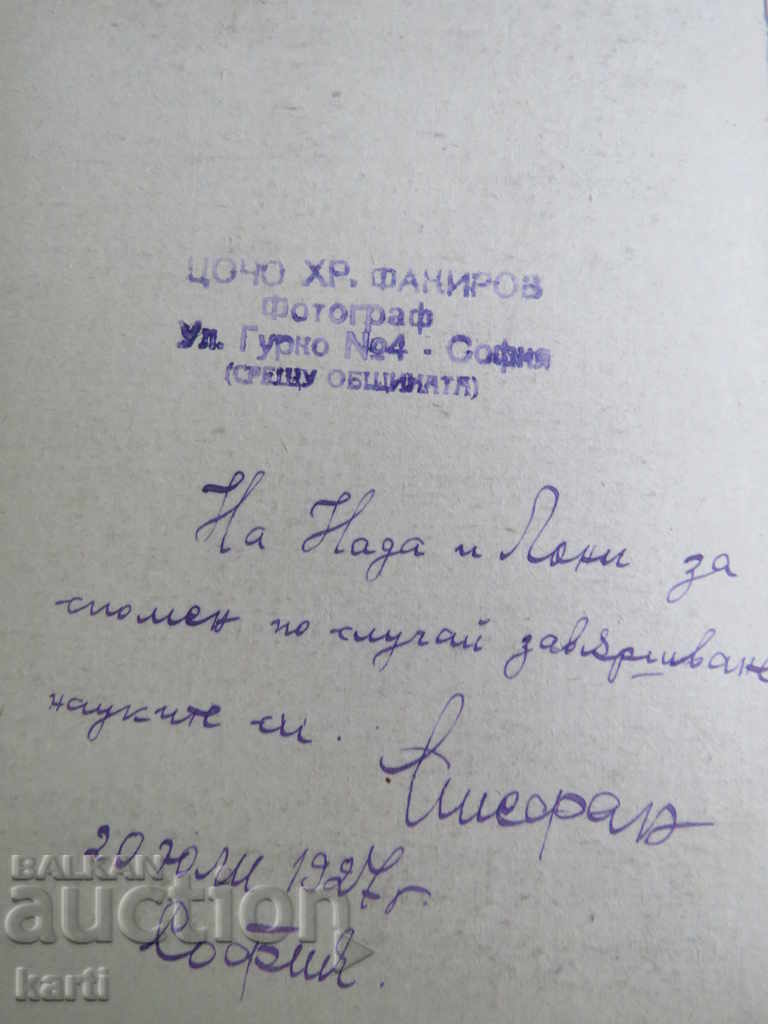 ЦОЧО ХР. ФАНИРОВ
Фотограф
Ул. Гурко №4 - София
(СРЕЩУ ОБЩИНАТА)
На Нада и Лони за
спомен по случай завършване
науките си.
20 юли 1927 г.
София.
BALKAN
auction
karti